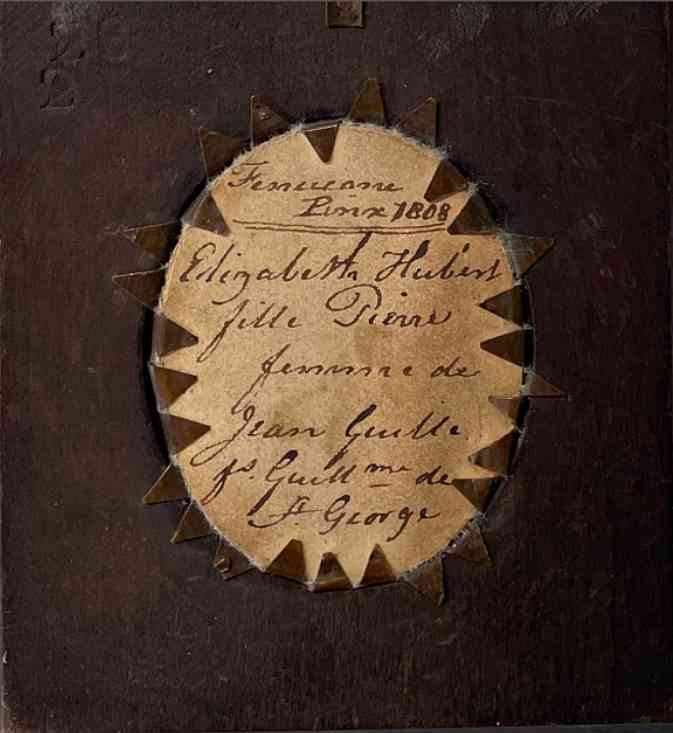 Pinx 1808
Elizabeth Hubert
fille Pierre
femme de
Jean Guille
fs. Guillme de
St. George